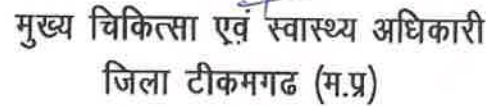 मुख्य चिकित्सा एवं स्वास्थ्य अधिकारी
जिला टीकमगढ (म.प्र)